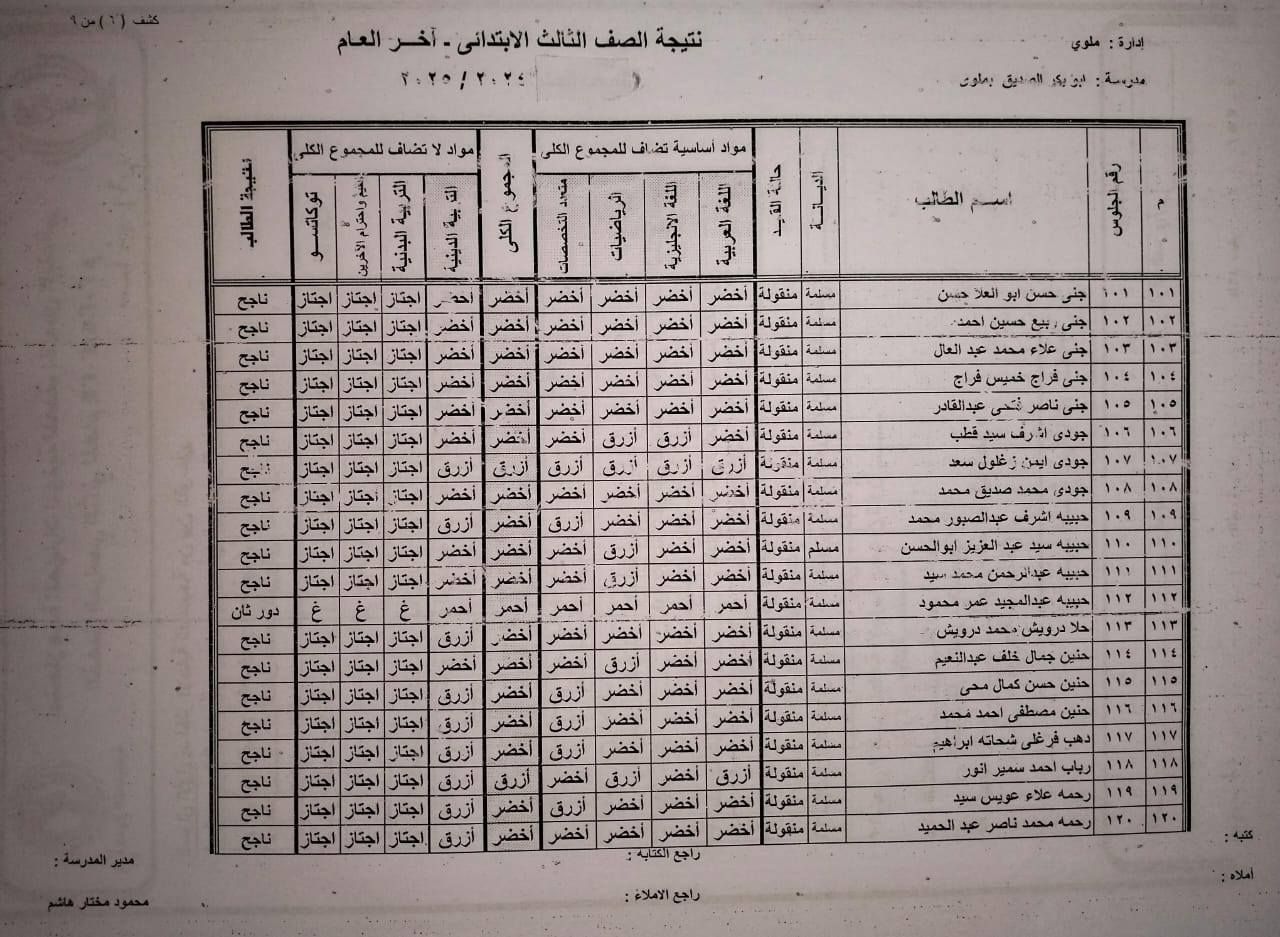 كشف ( ٦ ) من ٩
إدارة : ملوي
نتيجة الصف الثالث الابتدائى - آخـــر العـام
مدرسة : ابو بكر الصديق بملوى
٢٠٢٤ / ٢٠٢٥
م | رقم الجلوس | اســم الطالب | الديانــة | حالة القيد | مواد أساسية تضاف للمجموع الكلى | المجموع الكلى | مواد لا تضاف للمجموع الكلى | نتيجة الطالب
اللغة العربية | اللغة الانجليزية | الرياضيات | متعدد التخصصات | التربية الدينية | التربية البدنية | القيم واحترام الآخرين | توكاتســو
١٠١ ١٠١ جنى حسن ابو العلا حسن مسلمة منقولة أخضر أخضر أخضر أخضر أخضر أخضر اجتاز اجتاز اجتاز ناجح
١٠٢ ١٠٢ جنى ربيع حسين احمد مسلمة منقولة أخضر أخضر أخضر أخضر أخضر أخضر اجتاز اجتاز اجتاز ناجح
١٠٣ ١٠٣ جنى علاء محمد عبد العال مسلمة منقولة أخضر أخضر أخضر أخضر أخضر أخضر اجتاز اجتاز اجتاز ناجح
١٠٤ ١٠٤ جنى فراج خميس فراج مسلمة منقولة أخضر أخضر أخضر أخضر أخضر أخضر اجتاز اجتاز اجتاز ناجح
١٠٥ ١٠٥ جنى ناصر فتحى عبدالقادر مسلمة منقولة أخضر أخضر أخضر أخضر أخضر أخضر اجتاز اجتاز اجتاز ناجح
١٠٦ ١٠٦ جودى اشرف سيد قطب مسلمة منقولة أخضر أزرق أزرق أخضر أخضر أخضر اجتاز اجتاز اجتاز ناجح
١٠٧ ١٠٧ جودى ايمن زغلول سعد مسلمة منقولة أزرق أزرق أزرق أزرق أزرق أزرق اجتاز اجتاز اجتاز ناجح
١٠٨ ١٠٨ جودى محمد صديق محمد مسلمة منقولة أخضر أخضر أخضر أخضر أخضر أخضر اجتاز اجتاز اجتاز ناجح
١٠٩ ١٠٩ حبيبه اشرف عبدالصبور محمد مسلمة منقولة أخضر أخضر أخضر أزرق أخضر أزرق اجتاز اجتاز اجتاز ناجح
١١٠ ١١٠ حبيبه سيد عبد العزيز ابوالحسن مسلم منقولة أخضر أخضر أزرق أخضر أخضر أخضر اجتاز اجتاز اجتاز ناجح
١١١ ١١١ حبيبه عبدالرحمن محمد سيد مسلمة منقولة أخضر أخضر أزرق أخضر أخضر أخضر اجتاز اجتاز اجتاز ناجح
١١٢ ١١٢ حبيبه عبدالمجيد عمر محمود مسلمة منقولة أحمر أحمر أحمر أحمر أحمر أحمر غ غ غ دور ثان
١١٣ ١١٣ حلا درويش محمد درويش مسلمة منقولة أخضر أخضر أخضر أخضر أخضر أزرق اجتاز اجتاز اجتاز ناجح
١١٤ ١١٤ حنين جمال خلف عبدالنعيم مسلمة منقولة أخضر أخضر أزرق أخضر أخضر أخضر اجتاز اجتاز اجتاز ناجح
١١٥ ١١٥ حنين حسن كمال محى مسلمة منقولة أخضر أخضر أخضر أزرق أخضر أزرق اجتاز اجتاز اجتاز ناجح
١١٦ ١١٦ حنين مصطفى احمد محمد مسلمة منقولة أخضر أخضر أخضر أزرق أخضر أزرق اجتاز اجتاز اجتاز ناجح
١١٧ ١١٧ دهب فرغلى شحاته ابراهيم مسلمة منقولة أخضر أخضر أخضر أزرق أخضر أزرق اجتاز اجتاز اجتاز ناجح
١١٨ ١١٨ رباب احمد سمير انور مسلمة منقولة أزرق أخضر أزرق أخضر أزرق أزرق اجتاز اجتاز اجتاز ناجح
١١٩ ١١٩ رحمه علاء عويس سيد مسلمة منقولة أخضر أخضر أخضر أزرق أخضر أزرق اجتاز اجتاز اجتاز ناجح
١٢٠ ١٢٠ رحمه محمد ناصر عبد الحميد مسلمة منقولة أخضر أخضر أخضر أخضر أخضر أزرق اجتاز اجتاز اجتاز ناجح
كتبه :
راجع الكتابه :
مدير المدرسة :
أملاه :
راجع الاملاء :
محمود مختار هاشم